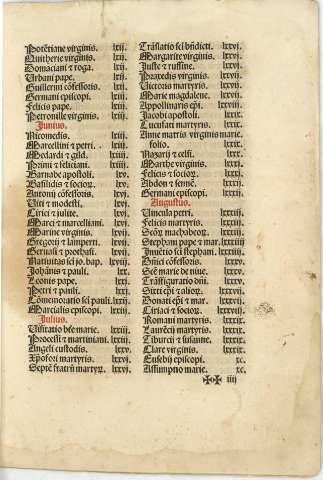 Potẽtiane virginis. lxij.
Quitherie virginis. lxij.
Donaciani & roga. lxij.
Urbani pape. lxij.
Guillermi cõfessoris. lxij.
Germani episcopi. lxij.
Felicis pape. lxij.
Petronille virginis. lxij.
Junius.
Nicomedis. lxij.
Marcellini & petri.
Medardi & gild.
Primi & feliciani.
Barnabe apostoli. lxv.
Basilidis & socioꝝ.
Antonij cõfessoris. lxvj.
Viti & modesti. lxvj.
Cirici & julite. lxvj.
Marci & marcelliani. lxvj.
Marine virginis. lxvj.
Gregorij & lamperti. lxvj.
Geruasi & prothasi. lxvj.
Natiuitas sci jo. bap. lxviij.
Johãnis & pauli. lxx.
Leonis pape. lxx.
Petri & pauli. lxx.
Cõmemoratio sci pauli. lxxij.
Marcialis episcopi. lxxij.
Julius.
Visitatio bte marie. lxxiij.
Processi & martiniani. lxxiiij.
Angeli custodis. lxxv.
Xpofori martyris. lxxvj.
Septẽ fratrũ martyꝝ. lxxvj.
Trãslatio sci bñdicti. lxxvj.
Margarite virginis. lxxvij.
Juste & ruffine. lxxvij.
Praxedis virginis. lxxvij.
Victoris martyris. lxxvij.
Marie magdalene. lxxvij.
Appollinaris ep̃i. lxxviij.
Jacobi apostoli. lxxix.
Cucufati martyris. lxxix.
Anne matris virginis marie.
folio. lxxix.
Nazarij & celsi. lxxx.
Marthe virginis. lxxxj.
Felicis & socioꝝ. lxxxj.
Abdon & sennẽ. lxxxij.
Germani episcopi. lxxxij.
Augustus.
Vincula petri. lxxxij.
Felicis martyris. lxxxiij.
Scõꝝ machabeoꝝ. lxxxiij.
Stephani pape & mar. lxxxiij
Inuẽtio sci stephani. lxxxiiij.
Dñici cõfessoris. lxxxv.
Scẽ marie de niue. lxxxv.
Trãsfiguratio dñi. lxxxv.
Sixti ep̃i & alioꝝ. lxxxvij.
Donati ep̃i & mar. lxxxvij.
Ciriaci & socioꝝ. lxxxvij.
Romani martyris. lxxxix.
Laurẽcij martyris. lxxxix.
Tiburcij & susanne. lxxxix.
Clare virginis. lxxxix.
Eusebij episcopi. xc.
Assumptio marie. xc.
✠ iiij